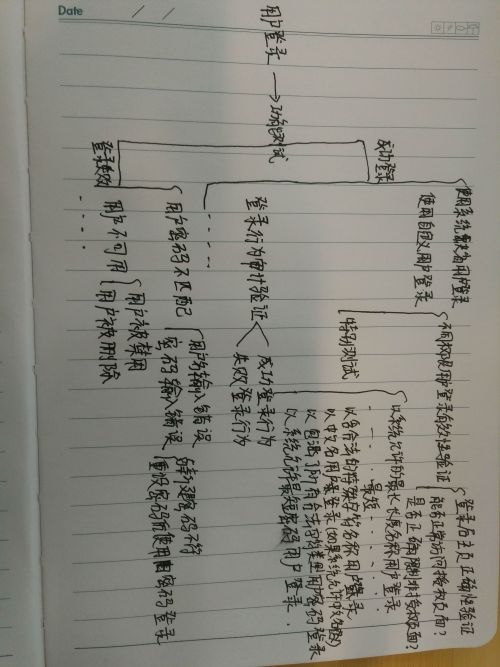 Date
用户登录 → 功能测试
成功登录
使用系统默认用户登录
使用自定义用户登录
不同权限用户登录有效性验证
登录后主页正确性验证
能否正常访问授权页面?
是否正确限制非授权页面?
特别测试
以系统允许的最长长度名称用户登录
最短
以含合法的特殊字符名称用户登录
以中文名用户登录(如果系统允许中文名的)
以包涵了所有合法字符类型用户密码登录
以系统允许最短密码用户登录.
登录行为审计验证
成功登录行为
失败登录行为
登录失败
用户密码不匹配
用户名输入错误
密码输入错误
与新建密码不符
重设密码而使用旧密码登录
用户不可用
用户被禁用
用户被删除